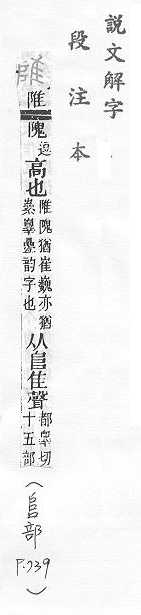 說文解字
段注本
陮
陮隗逗高也
陮隗猶崔巍亦猶
辠曡韵字也
从𨸏隹聲
都辠切
十五部
(𨸏部 P.739)